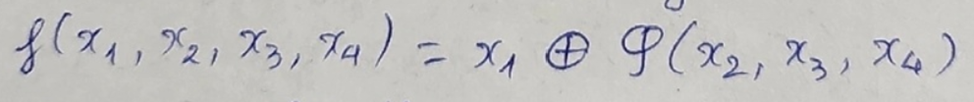 f(x₁, x₂, x₃, x₄) = x₁ ⊕ φ(x₂, x₃, x₄)